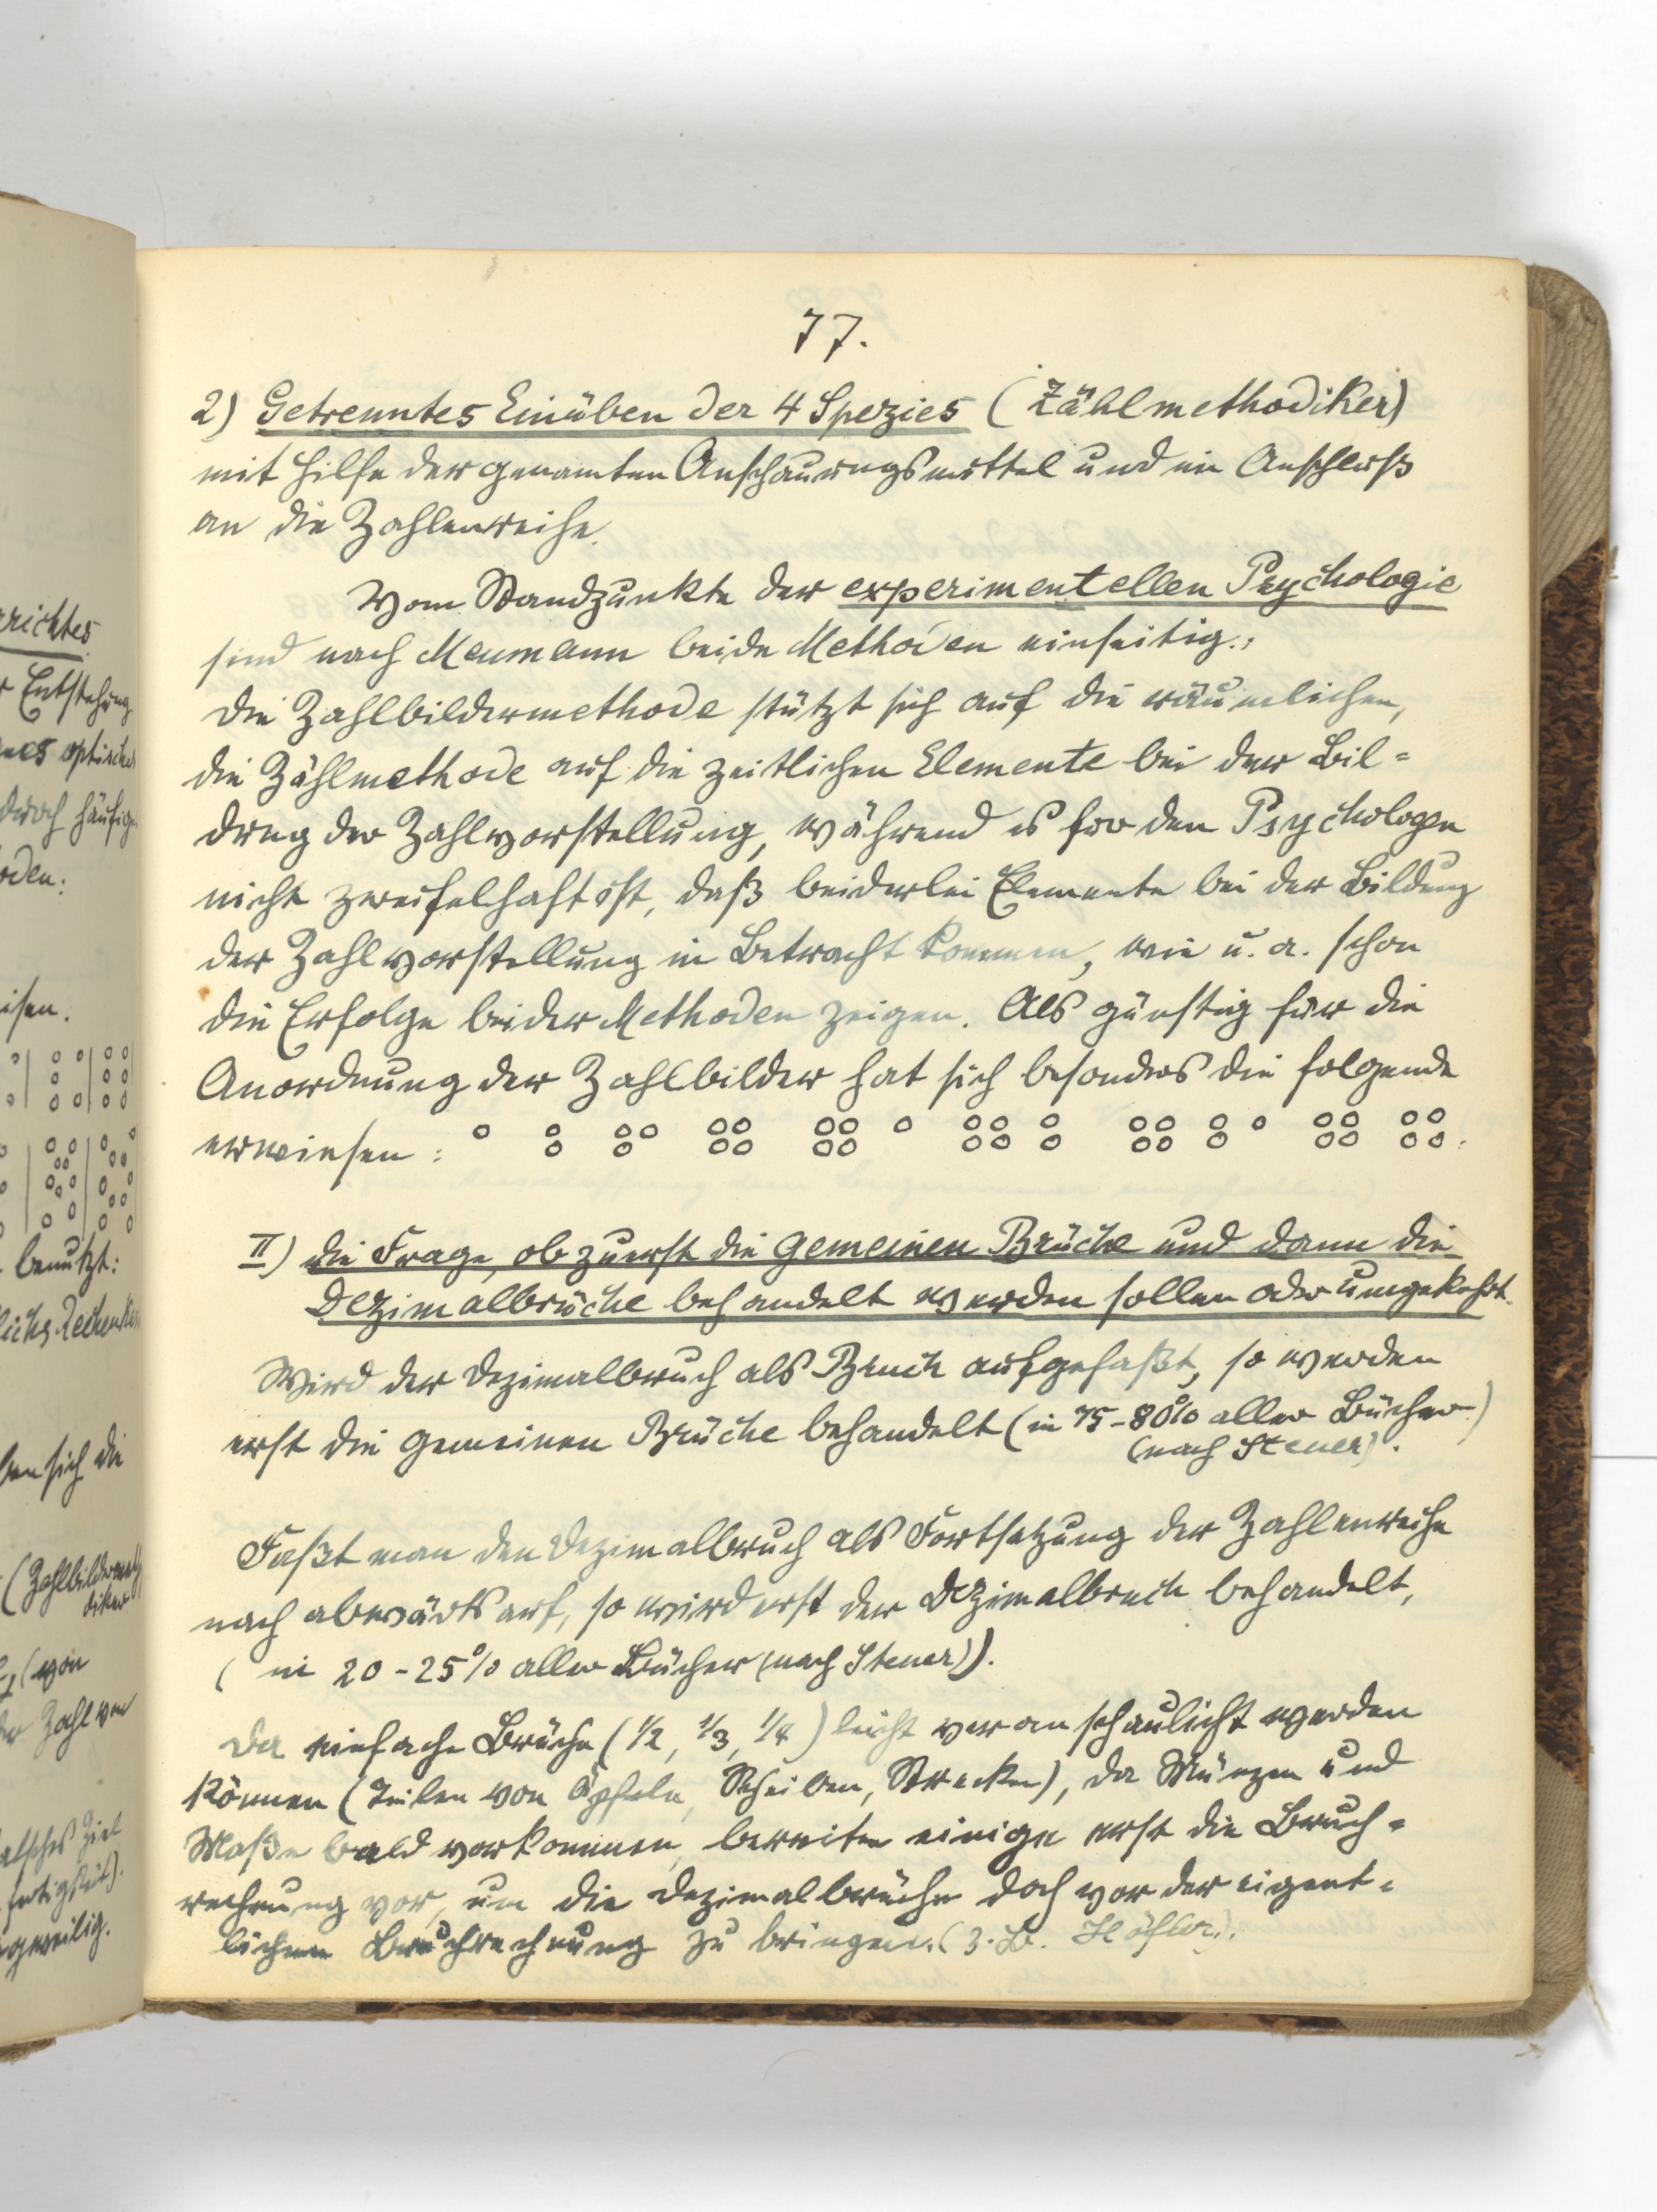 77.
2) Getrenntes Einüben der 4 Spezies (Zählmethodiker)
mit Hilfe der genannten Anschauungsmittel und im Anschluß
an die Zahlenreihe.
Vom Standpunkte der experimentellen Psychologie
sind nach Meumann beide Methoden einseitig.:
Die Zahlbildermethode stützt sich auf die räumlichen,
die Zählmethode auf die zeitlichen Elemente bei der Bil=
dung der Zahlvorstellung, während es für den Psychologen
nicht zweifelhaft ist, daß beiderlei Elemente bei der Bildung
der Zahlvorstellung in Betracht kommen, wie u. a. schon
die Erfolge beider Methoden zeigen. Als günstig für die
Anordnung der Zahlbilder hat sich besonders die folgende
erwiesen:
II) Die Frage, ob zuerst die gemeinen Brüche und dann die
Dezimalbrüche behandelt werden sollen oder umgekehrt.
Wird der Dezimalbruch als Bruch aufgefaßt, so werden
erst die gemeinen Brüche behandelt (in 75-80% aller Bücher)
(nach Steuer).
Faßt man den Dezimalbruch als Fortsetzung der Zahlenreihe
nach abwärts auf, so wird erst der Dezimalbruch behandelt,
(in 20-25% aller Bücher (nach Steuer)).
Da einfache Brüche (1/2, 1/3, 1/4) leicht veranschaulicht werden
können (Teilen von Äpfeln, Scheiben, Strecken), da Münzen und
Maße bald vorkommen, bereiten einige erst die Bruch=
rechnung vor, um die Dezimalbrüche doch vor der eigent=
lichen Bruchrechnung zu bringen. (z. B. Höfler).
richtes
Entstehung
optischen
durch häufige
oden:
isen.
benutzt:
sich die
(Zahlbildermeth
diker
(von
Zahl von
Ziel